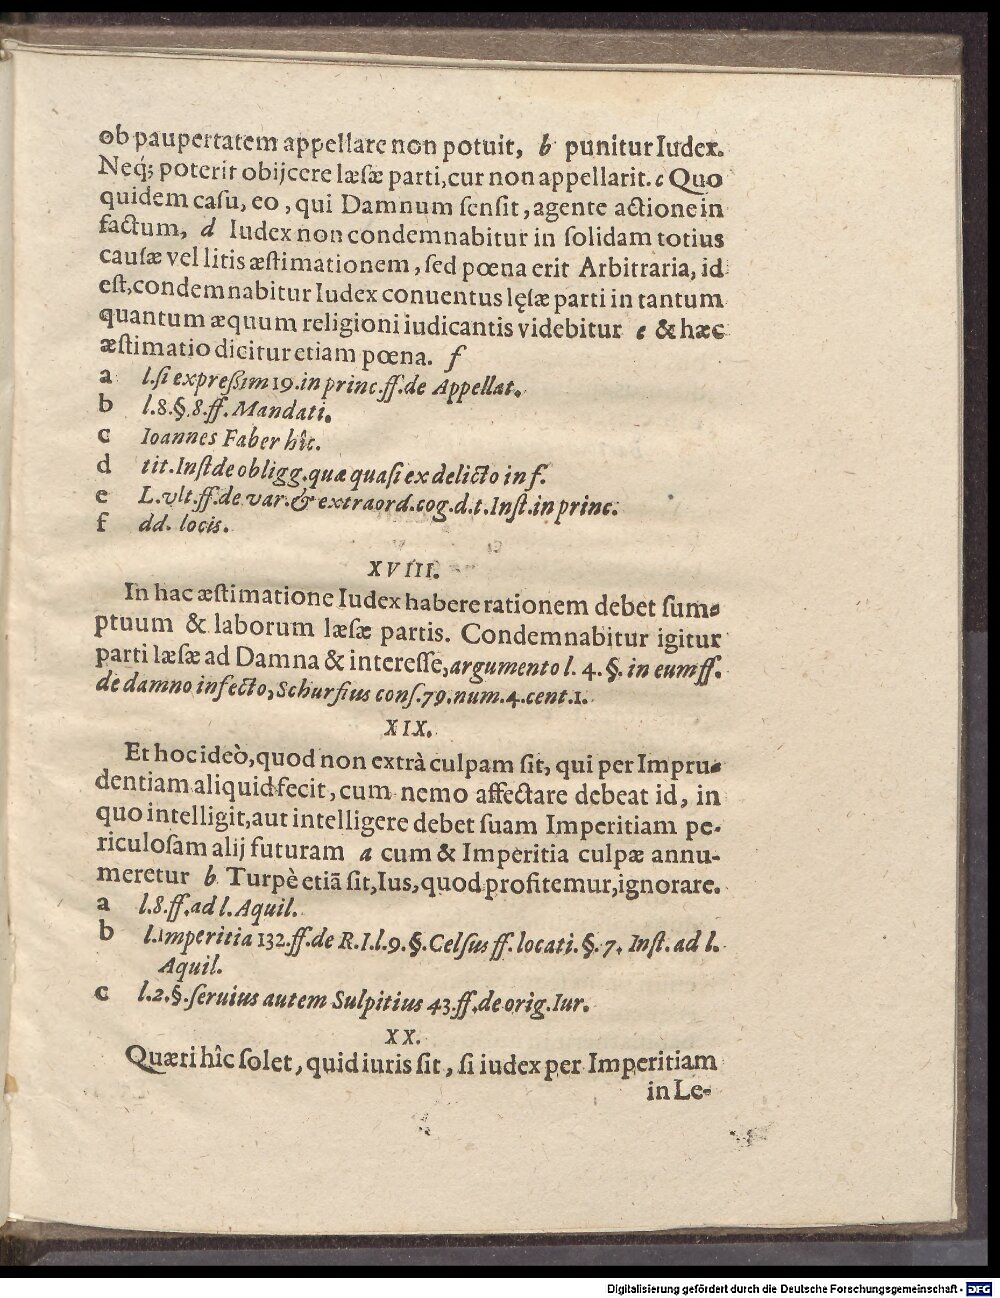 ob paupertatem appellare non potuit, b punitur Iudex.
Neq́; poterit obijcere læsæ parti, cur non appellarit. c Quo
quidem casu, eo, qui Damnum sensit, agente actione in
factum, d Iudex non condemnabitur in solidam totius
causæ vel litis æstimationem, sed pœna erit Arbitraria, id
est, condemnabitur Iudex conuentus lęsæ parti in tantum
quantum æquum religioni iudicantis videbitur e & hæc
æstimatio dicitur etiam pœna. f
a l. si expressim 19. in princ. ff. de Appellat.
b l. 8. §. 8. ff. Mandati.
c Ioannes Faber hîc.
d tit. Inst de obligg. quæ quasi ex delicto in f.
e L. vlt. ff. de var. & extraord. cog. d. t. Inst. in princ.
f dd. locis.
XVIII.
In hac æstimatione Iudex habere rationem debet sum-
ptuum & laborum læsæ partis. Condemnabitur igitur
parti læsæ ad Damna & interesse, argumento l. 4. §. in eum ff.
de damno infecto, Schurfius cons. 79. num. 4. cent. 1.
XIX.
Et hoc ideò, quod non extrà culpam sit, qui per Impru-
dentiam aliquid fecit, cum nemo affectare debeat id, in
quo intelligit, aut intelligere debet suam Imperitiam pe-
riculosam alij futuram a cum & Imperitia culpæ annu-
meretur b Turpè etiã sit, Ius, quod profitemur, ignorare.
a l. 8. ff. ad l. Aquil.
b l. Imperitia 132. ff. de R. I. l. 9. §. Celsus ff. locati. §. 7. Inst. ad l.
Aquil.
c l. 2. §. seruius autem Sulpitius 43. ff. de orig. Iur.
XX.
Quæri hîc solet, quid iuris sit, si iudex per Imperitiam
in Le-
Digitalisierung gefördert durch die Deutsche Forschungsgemeinschaft - DFG